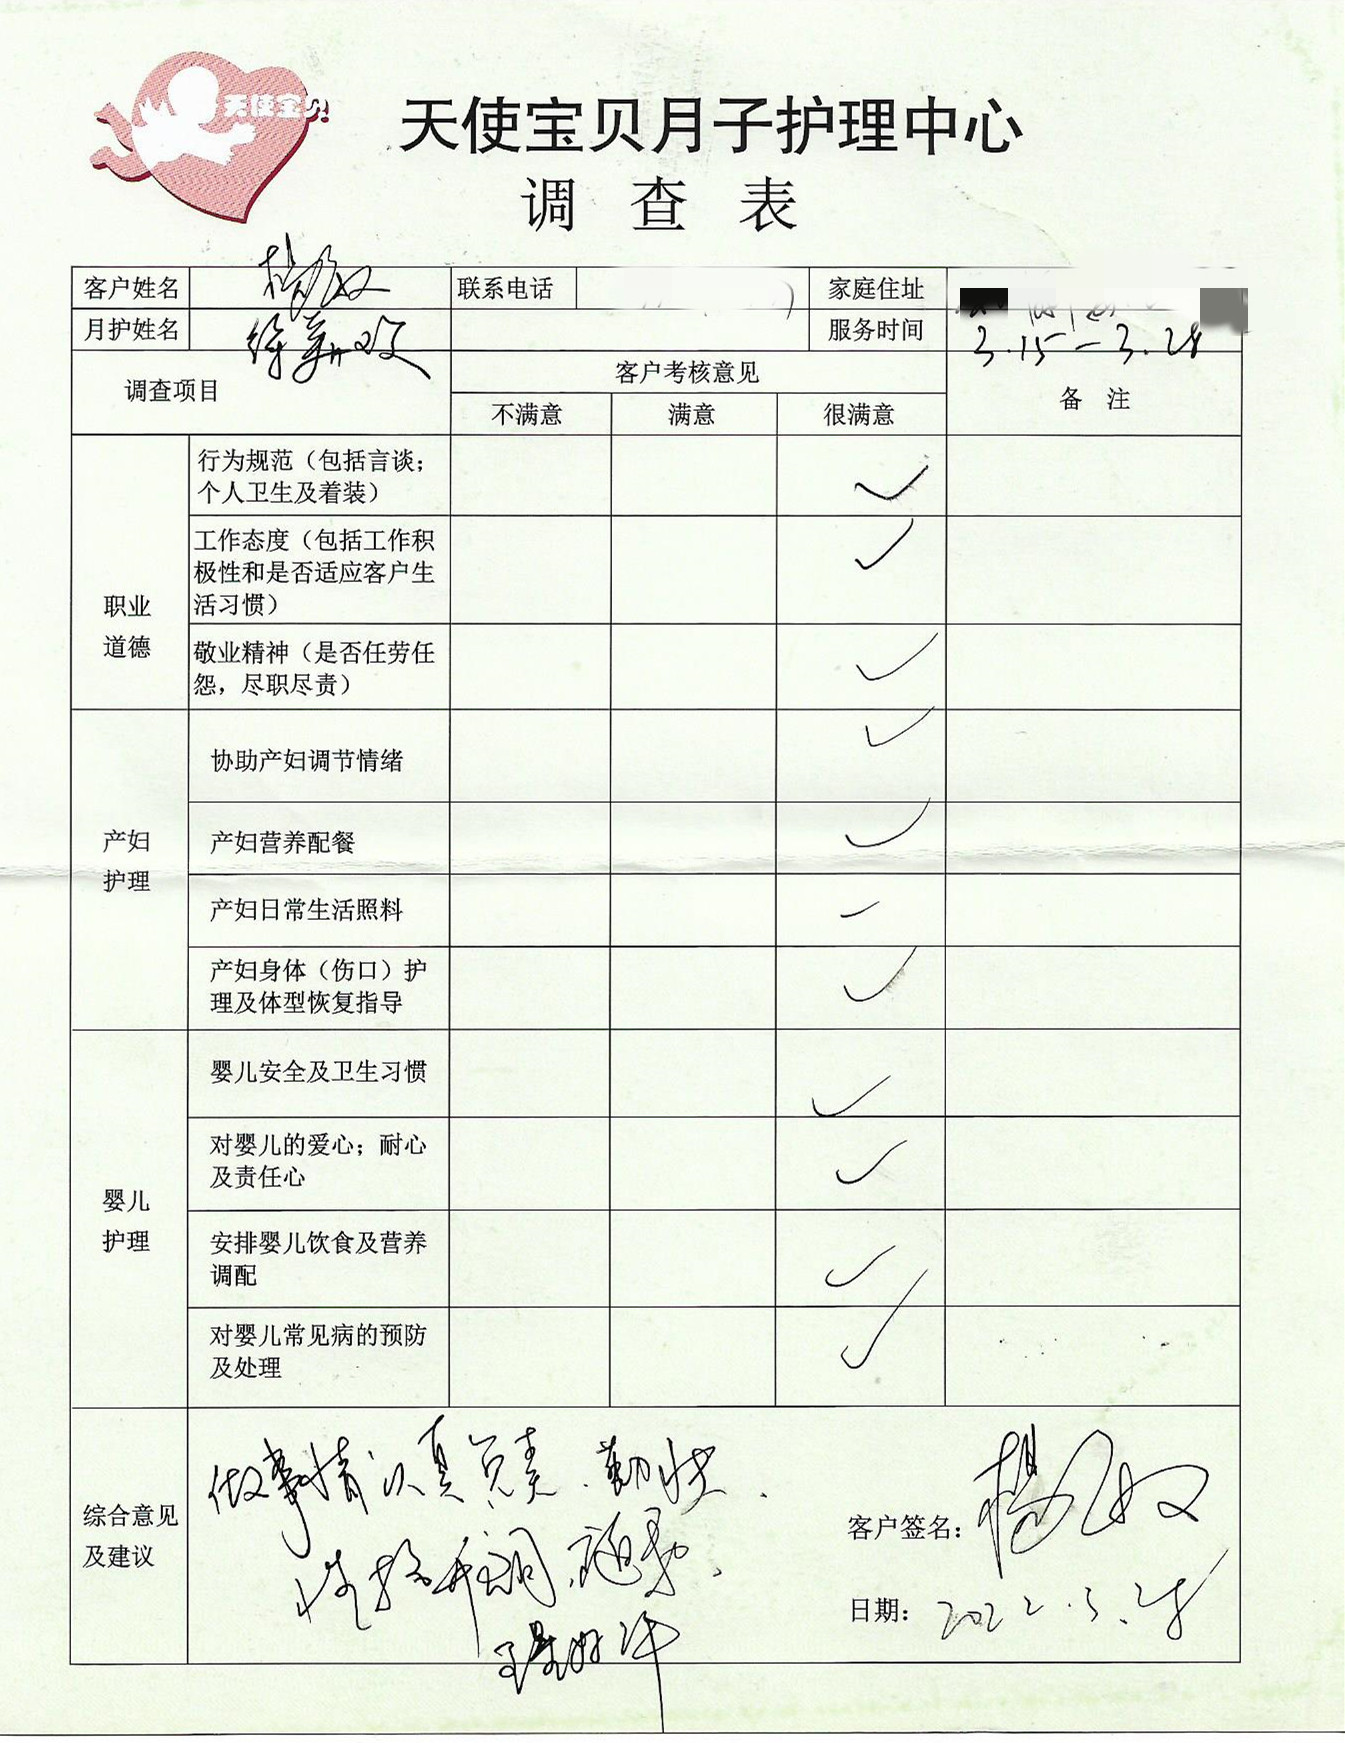 天使宝贝
天使宝贝月子护理中心
调 查 表
客户姓名 联系电话 家庭住址
月护姓名 服务时间 3.15-3.28
调查项目 客户考核意见 备 注
不满意 满意 很满意
职业
道德
行为规范（包括言谈；
个人卫生及着装） ✓
工作态度（包括工作积
极性和是否适应客户生
活习惯） ✓
敬业精神（是否任劳任
怨，尽职尽责） ✓
产妇
护理
协助产妇调节情绪 ✓
产妇营养配餐 ✓
产妇日常生活照料
产妇身体（伤口）护
理及体型恢复指导 ✓
婴儿
护理
婴儿安全及卫生习惯 ✓
对婴儿的爱心；耐心
及责任心 ✓
安排婴儿饮食及营养
调配 ✓
对婴儿常见病的预防
及处理 ✓
综合意见
及建议
做事情认真负责、勤快、
性格开朗、
客户签名：
日期：2022.3.28